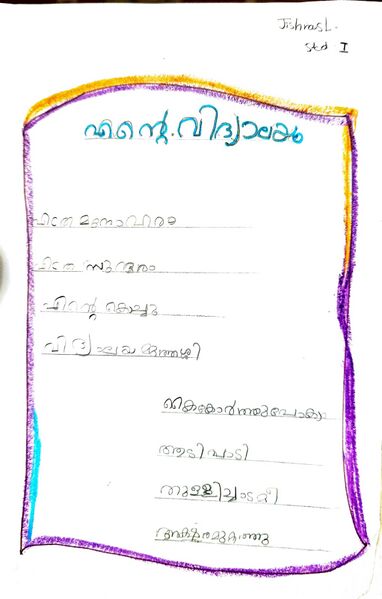 Jishnas L.
Std I
എന്റെ വിദ്യാലയം
എത്ര മനോഹരം
എത്ര സുന്ദരം
എന്റെ കൊച്ചു
വിദ്യാലയ മുത്തശ്ശി
കൈകോർത്തുപോകാം
ആടിപ്പാടി
തുള്ളിച്ചാടി